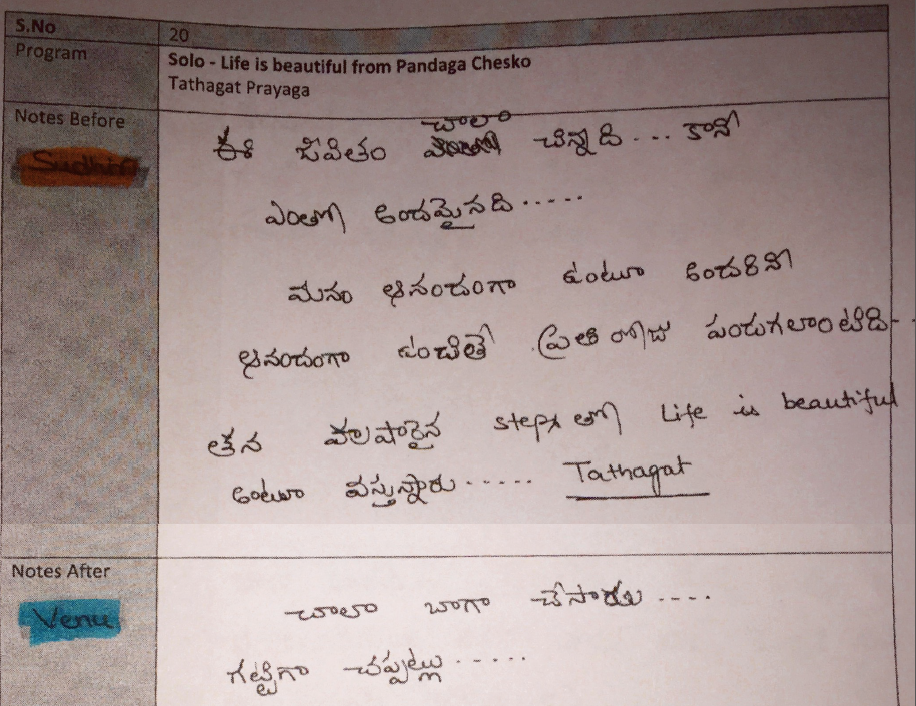 S.No 20
Program
Solo - Life is beautiful from Pandaga Chesko
Tathagat Prayaga
Notes Before
Sudhir
చాలా
ఈ జీవితం చిన్నది... కానీ
ఎంతో అందమైనది.....
మనం ఆనందంగా ఉంటూ అందరినీ
ఆనందంగా ఉంచితే ప్రతి రోజు పండుగలాంటిది..
తన హుషారైన steps తో Life is beautiful
అంటూ వస్తున్నారు..... Tathagat
Notes After
Venu
చాలా బాగా చేసారు....
గట్టిగా చప్పట్లు.....